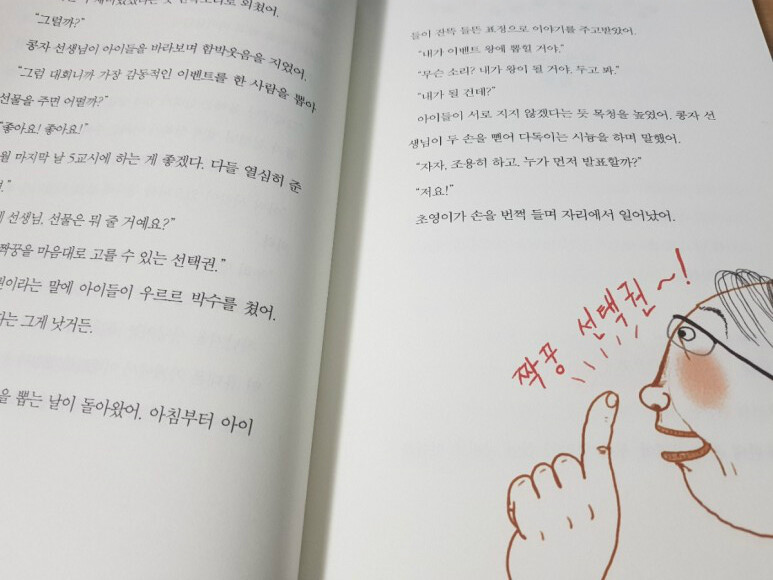 외쳤어.
"그럴까?"
콩자 선생님이 아이들을 바라보며 함박웃음을 지었어.
"그럼 대회니까 가장 감동적인 이벤트를 한 사람을 뽑아
선물을 주면 어떨까?"
"좋아요! 좋아요!"
월 마지막 날 5교시에 하는 게 좋겠다. 다들 열심히 준
선생님, 선물은 뭐 줄 거예요?"
짝꿍을 마음대로 고를 수 있는 선택권."
권이라는 말에 아이들이 우르르 박수를 쳤어.
그게 낫거든.
뽑는 날이 돌아왔어. 아침부터 아이
들이 잔뜩 들뜬 표정으로 이야기를 주고받았어.
"내가 이벤트 왕에 뽑힐 거야."
"무슨 소리? 내가 왕이 될 거야. 두고 봐."
"내가 될 건데?"
아이들이 서로 지지 않겠다는 듯 목청을 높였어. 콩자 선
생님이 두 손을 뻗어 다독이는 시늉을 하며 말했어.
"자자, 조용히 하고. 누가 먼저 발표할까?"
"저요!"
초영이가 손을 번쩍 들며 자리에서 일어났어.
짝꿍 선택권~!